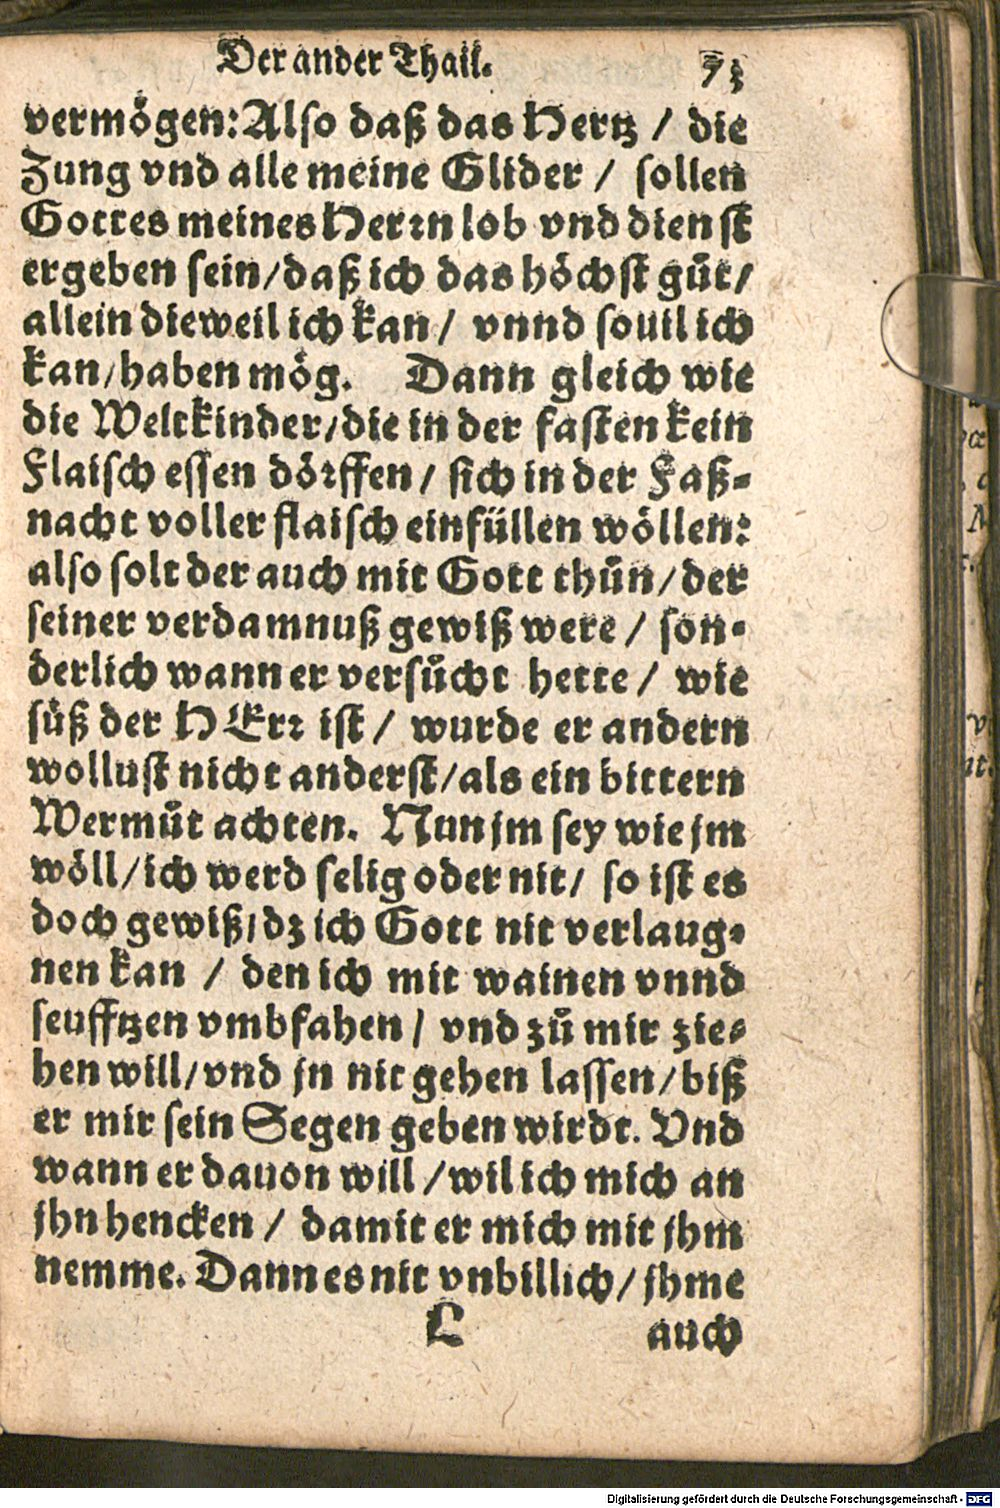 Der ander Thail. 73
vermögen: Also daß das Hertz / die
Zung vnd alle meine Glider / sollen
Gottes meines Herrn lob vnd dienst
ergeben sein / daß ich das höchst gůt /
allein dieweil ich kan / vnnd souil ich
kan / haben mög. Dann gleich wie
die Weltkinder / die in der fasten kein
Flaisch essen dörffen / sich in der Faß-
nacht voller flaisch einfüllen wöllen:
also solt der auch mit Gott thůn / der
seiner verdamnuß gewiß were / son-
derlich wann er versůcht hette / wie
süß der HErr ist / wurde er andern
wollust nicht anderst / als ein bittern
Wermůt achten. Nun jm sey wie jm
wöll / ich werd selig oder nit / so ist es
doch gewiß / dz ich Gott nit verlaug-
nen kan / den ich mit wainen vnnd
seufftzen vmbfahen / vnd zů mir zie-
hen will / vnd jn nit gehen lassen / biß
er mir sein Segen geben wirdt. Vnd
wann er dauon will / wil ich mich an
jhn hencken / damit er mich mit jhm
nemme. Dann es nit vnbillich / jhme
L auch
Digitalisierung gefördert durch die Deutsche Forschungsgemeinschaft - DFG